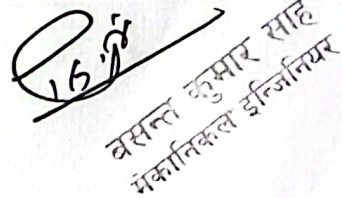 बसन्त कुमार साह
मेकानिकल इन्जिनियर